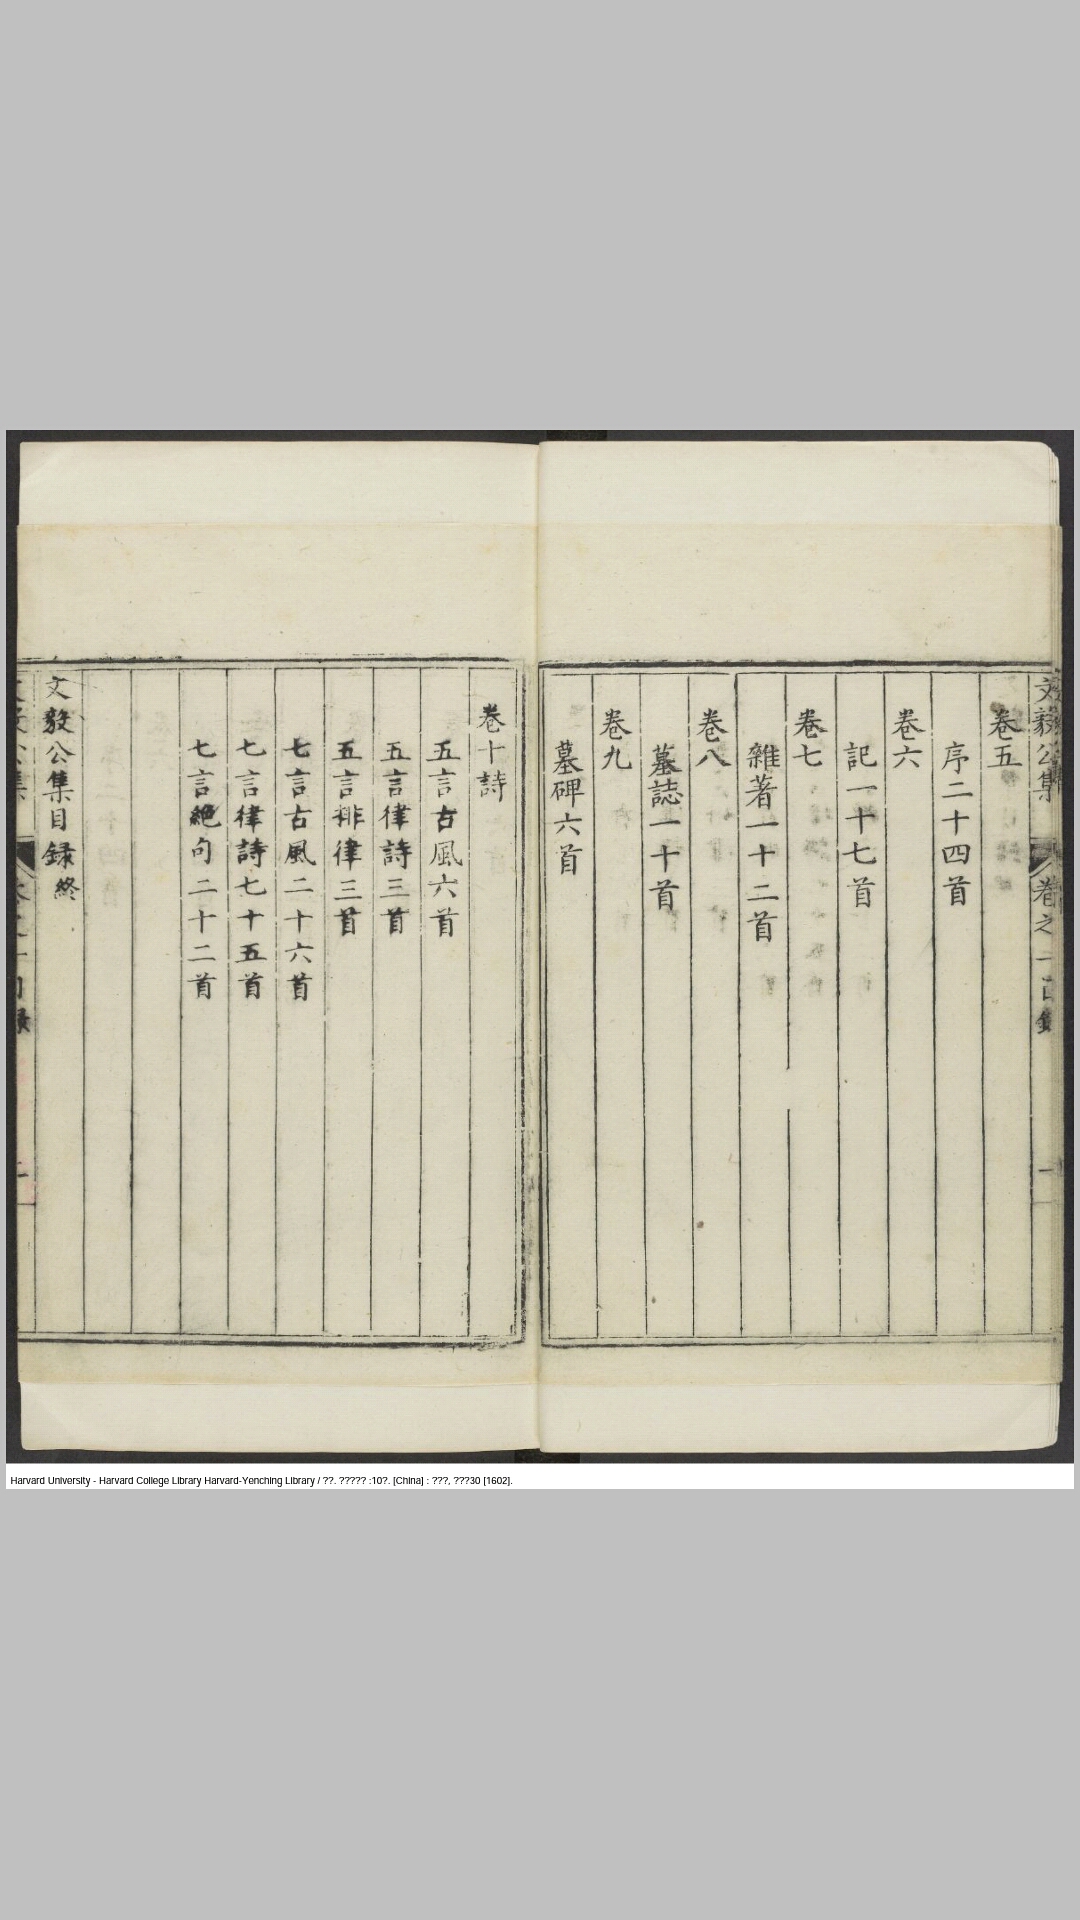 文毅公集 卷之一目錄 一
卷五
序二十四首
卷六
記一十七首
卷七
雜著一十二首
卷八
墓誌一十首
卷九
墓碑六首
卷十詩
五言古風六首
五言律詩三首
五言排律三首
七言古風二十六首
七言律詩七十五首
七言絕句二十二首
文毅公集目録終
Harvard University - Harvard College Library Harvard-Yenching Library / ??. ????? :10?. [China] : ???, ???30 [1602].